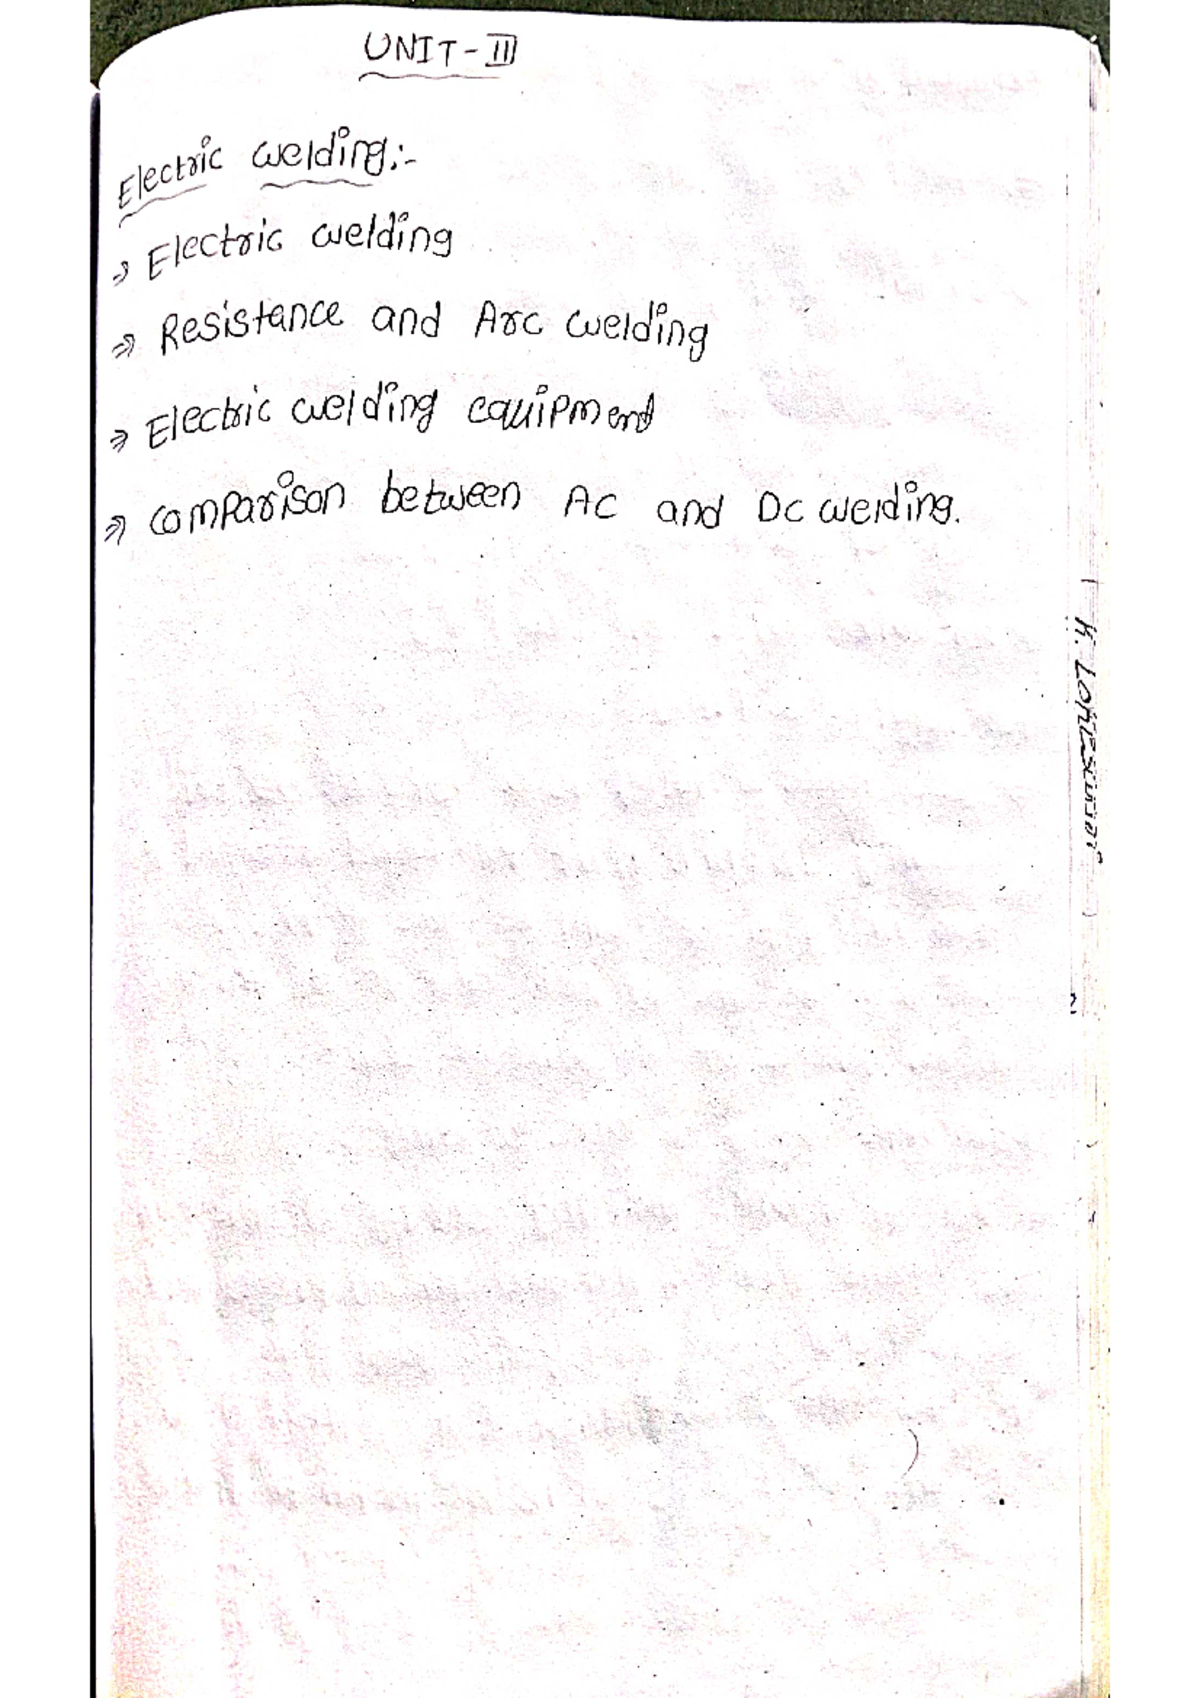 UNIT-III
Electric welding:-
⇒ Electric welding
⇒ Resistance and Arc welding
⇒ Electric welding equipment
⇒ comparison between AC and DC welding.